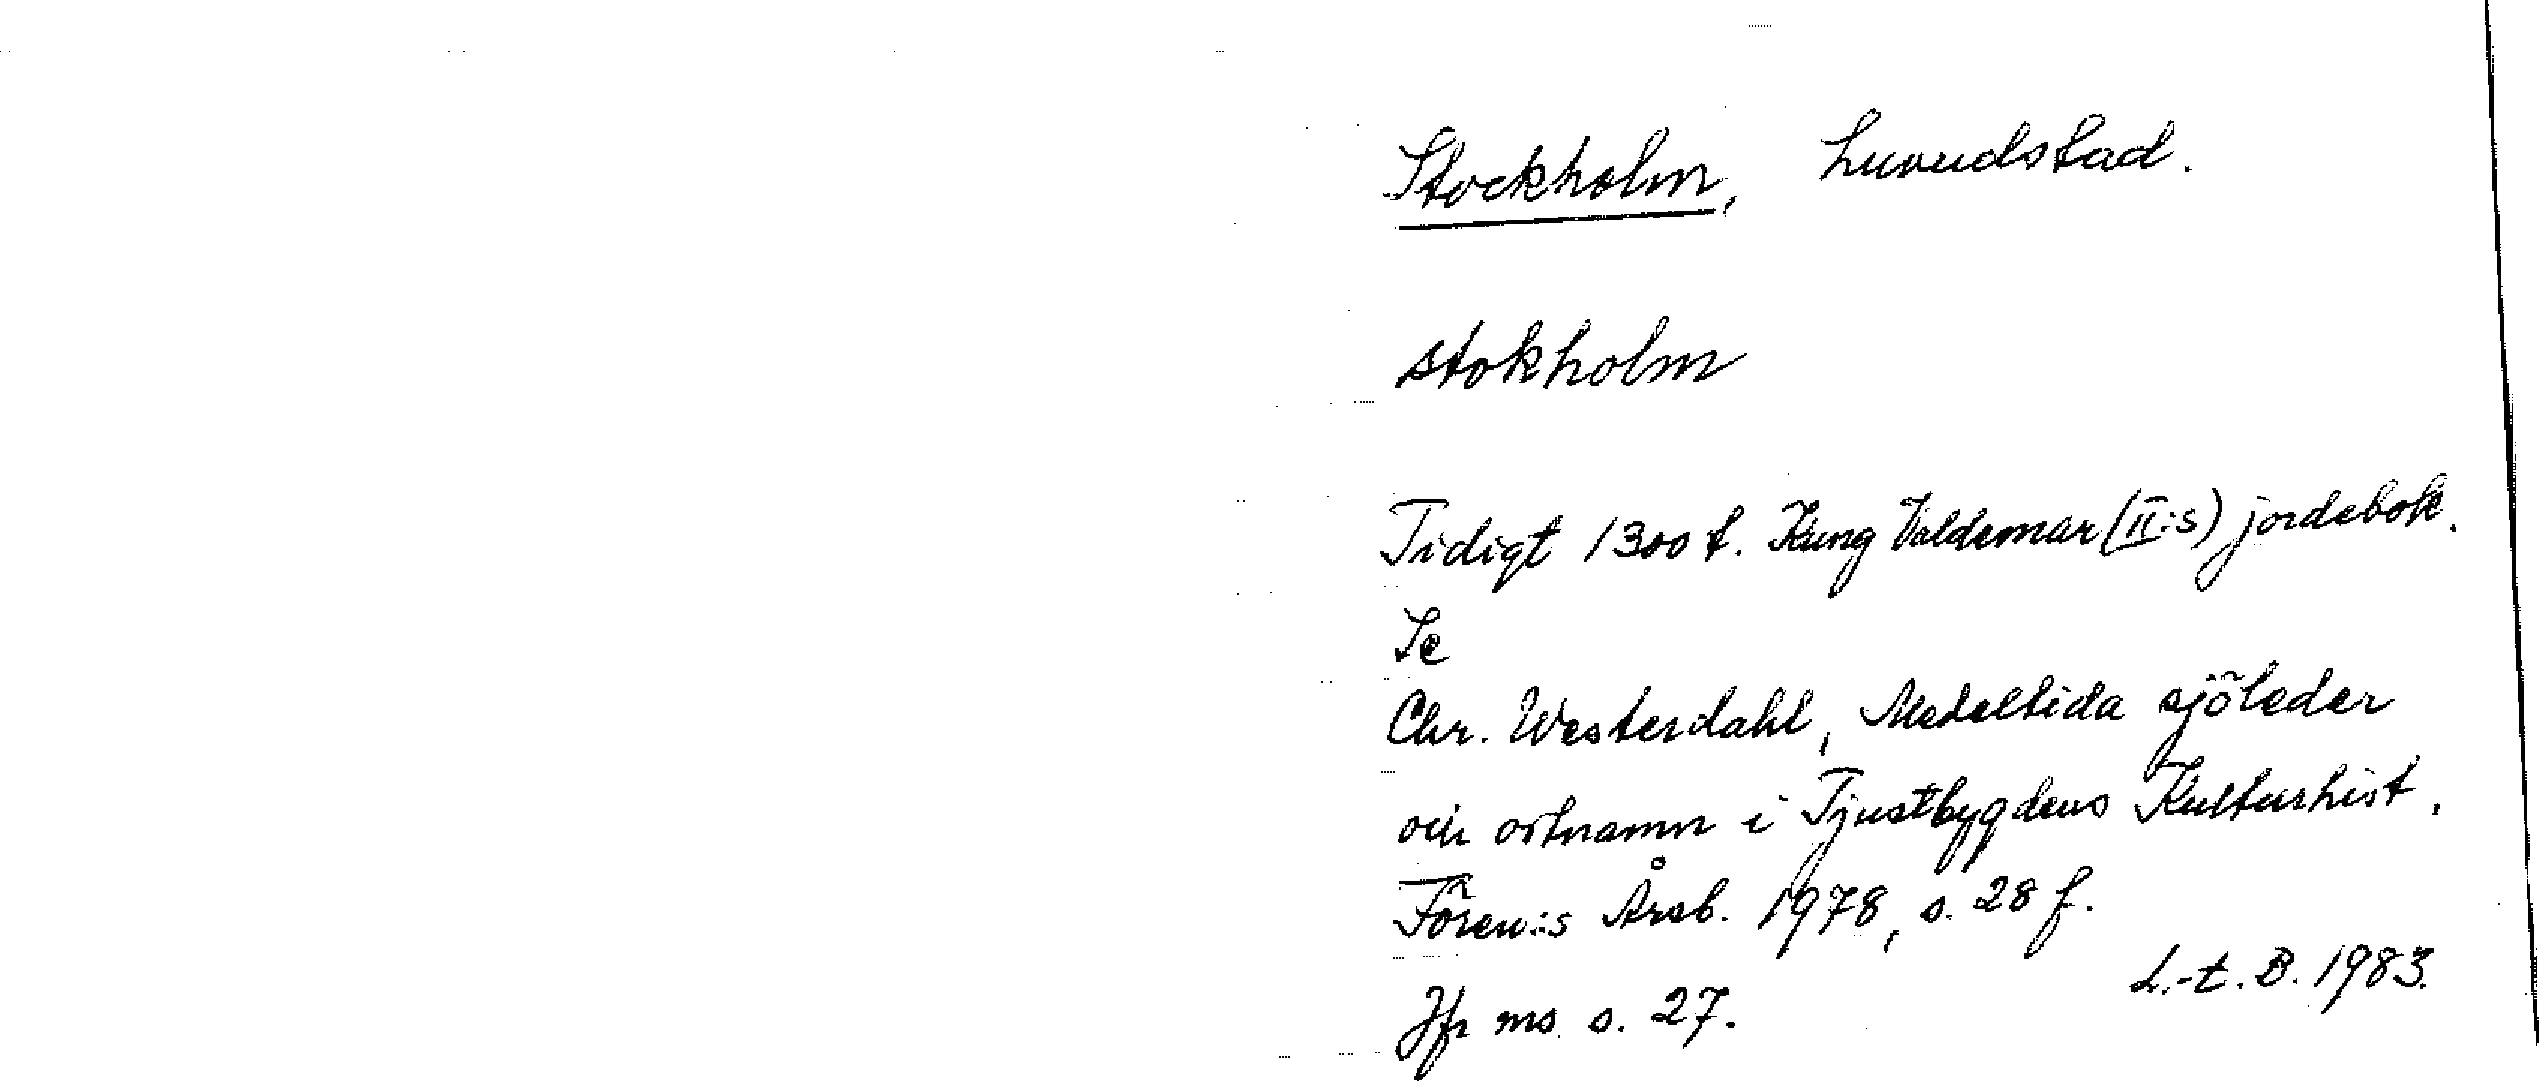 Stockholm, huvudstad.
stokholm
Tidigt 1300 t. Kung Valdemar (II:s) jordebok.
Se
Chr. Westerdahl, Medeltida sjöleder
och ortnamn i Tjustbygdens Kulturhist.
Fören:s Årsb. 1978, s. 28 f.
L.-t. B. 1983.
Jfr ms s. 27.